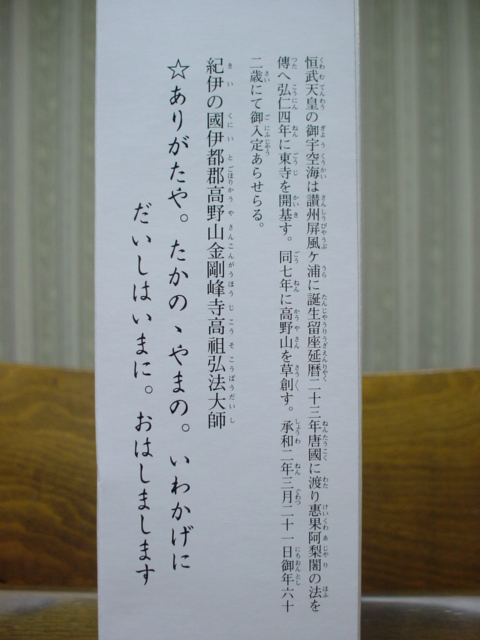 恒武天皇の御宇空海は讃州屏風ヶ浦に誕生留座延暦二十三年唐國に渡り惠果阿梨闍の法を
傳へ弘仁四年に東寺を開基す。同七年に高野山を草創す。承和二年三月二十一日御年六十
二歳にて御入定あらせらる。
紀伊の國伊都郡高野山金剛峰寺高祖弘法大師
☆ありがたや。たかのゝやまの。いわかげに
だいしはいまに。おはしまします